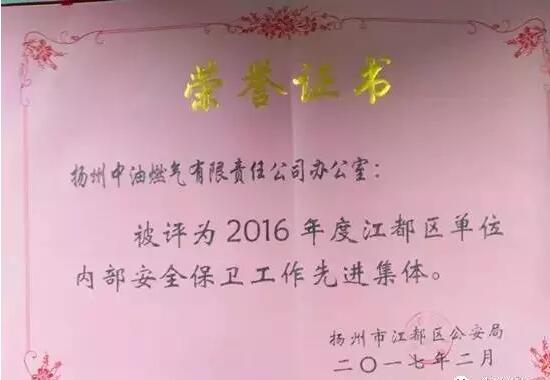 荣誉证书
扬州中油燃气有限责任公司办公室：
被评为2016年度江都区单位
内部安全保卫工作先进集体。
扬州市江都区公安局
二〇一七年二月